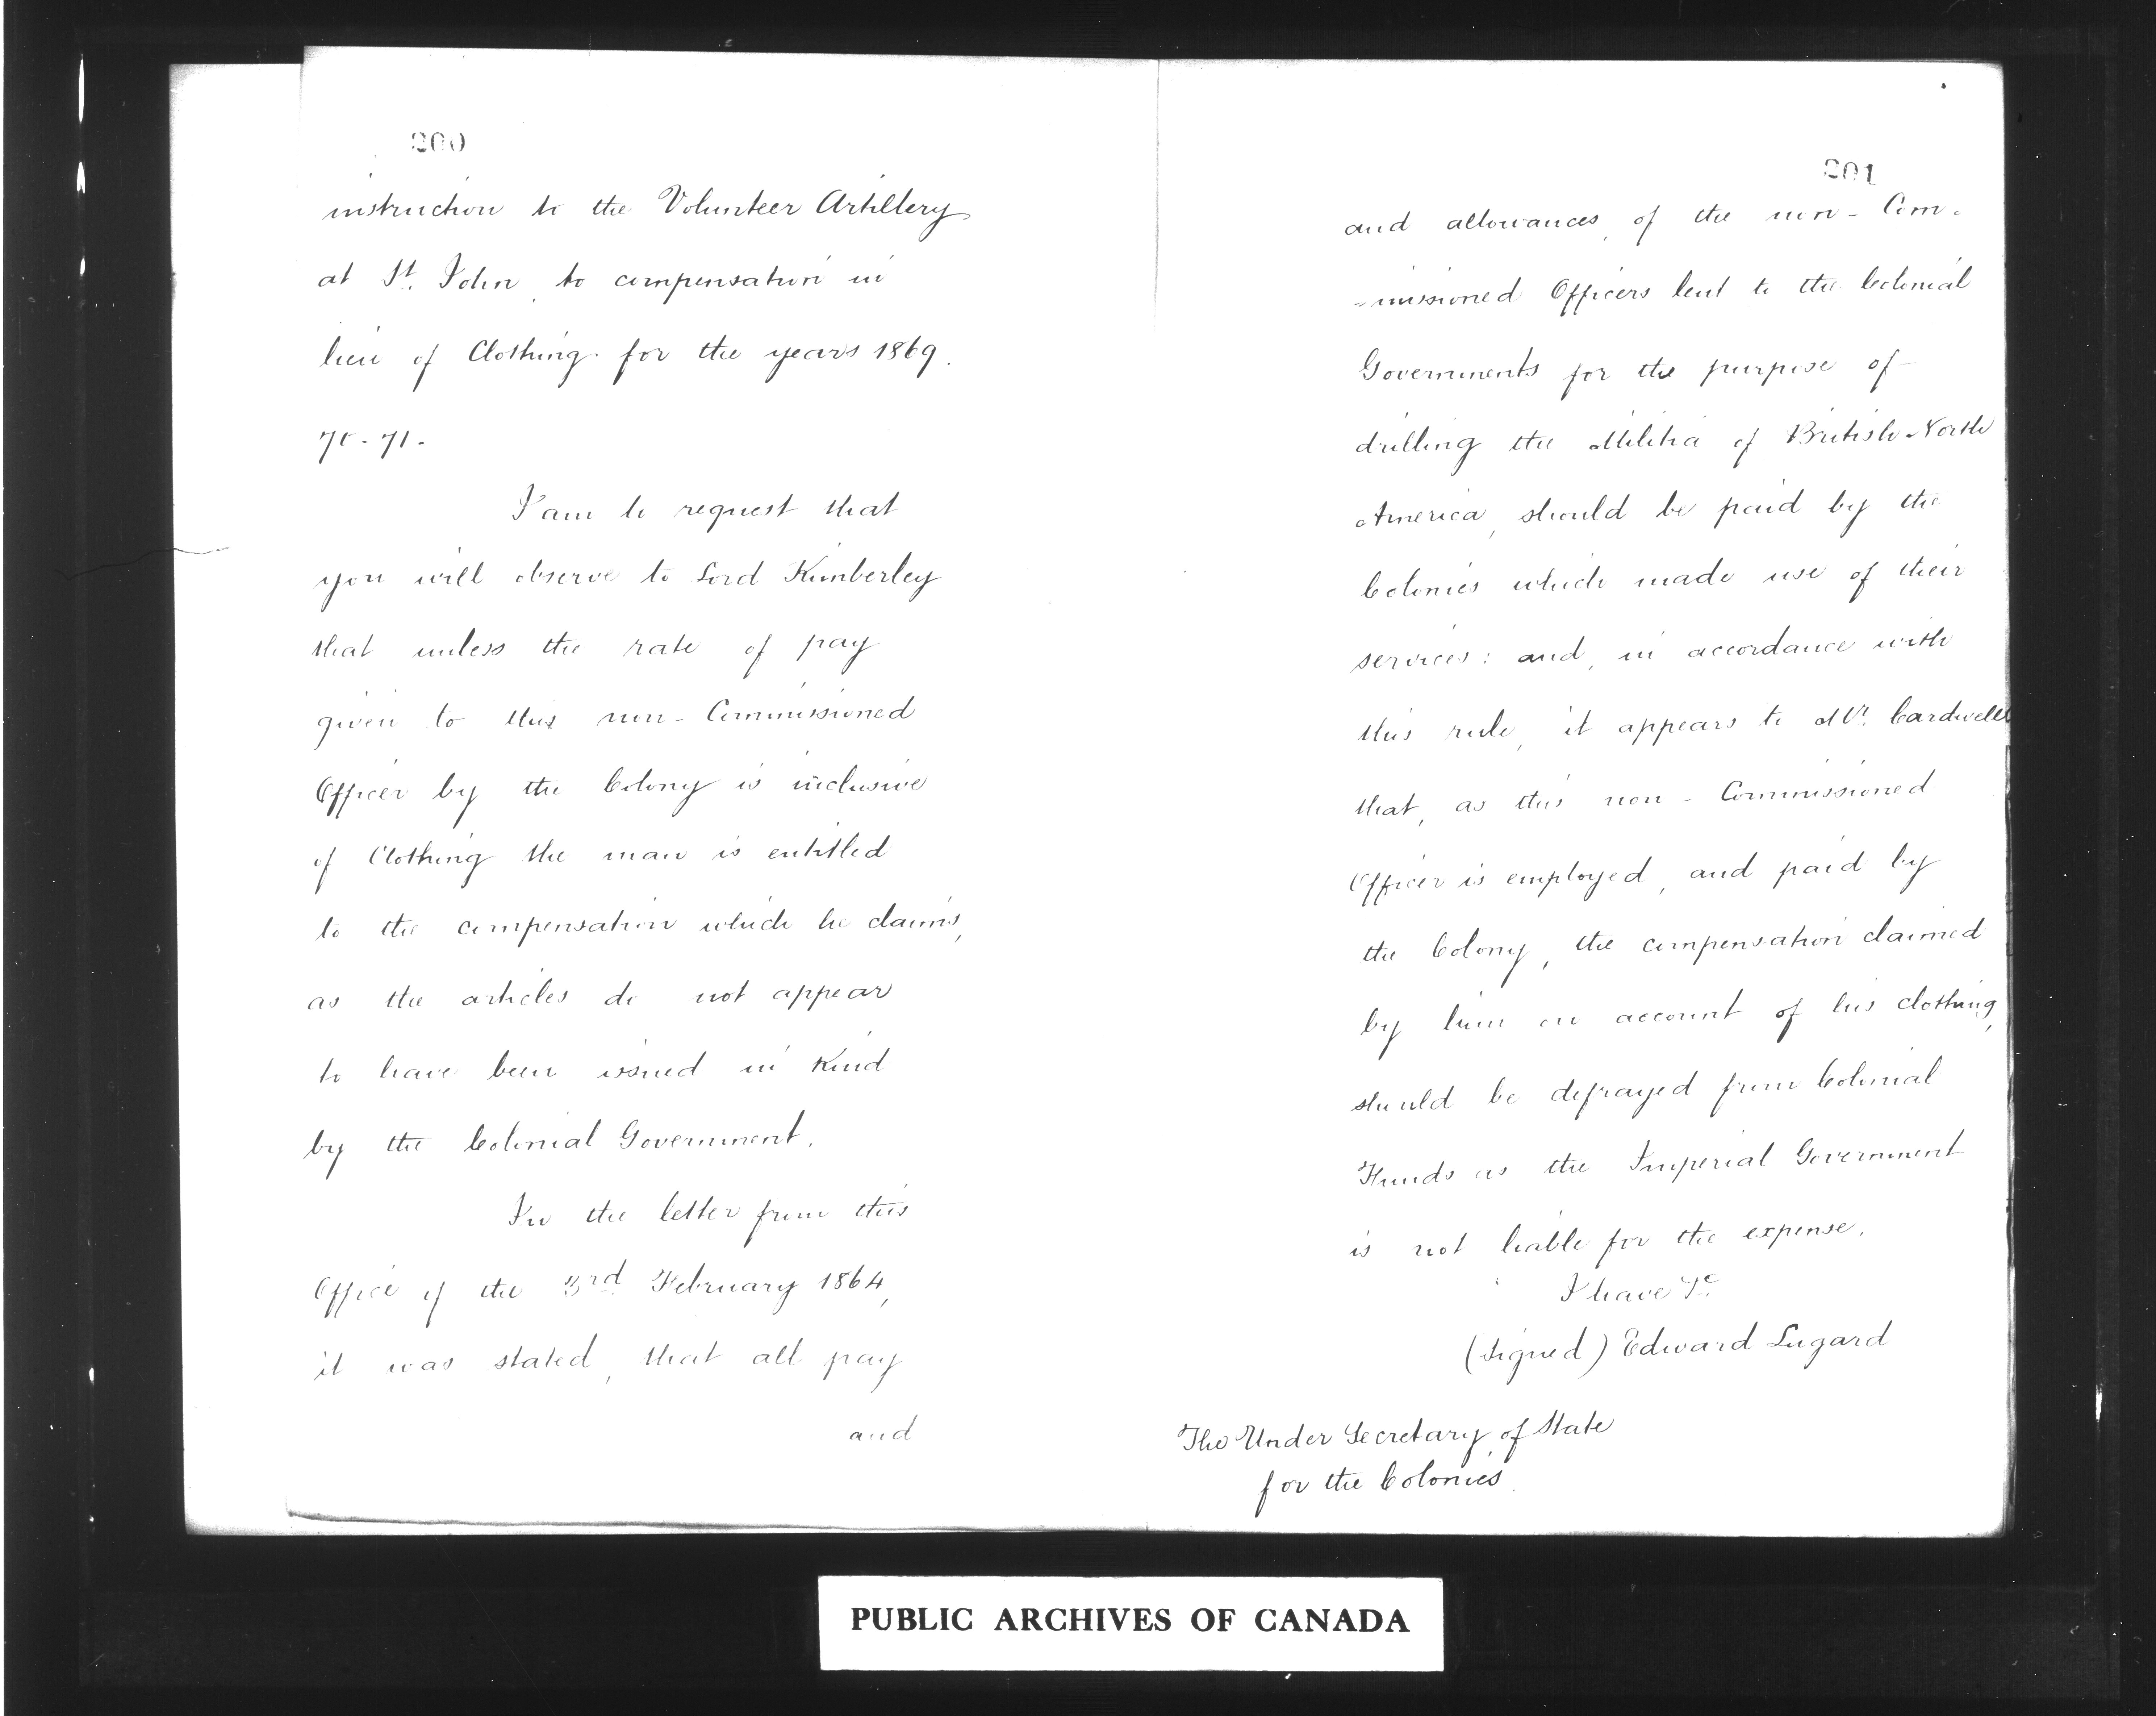 200
instruction to the Volunteer Artillery
at St. John, to compensation in
lieu of Clothing for the years 1869.
70-71.
I am to request that
you will observe to Lord Kimberley
that unless the rate of pay
given to this non-Commissioned
Officer by the Colony is inclusive
of Clothing the man is entitled
to the compensation which he claims,
as the articles do not appear
to have been issued in Kind
by the Colonial Government.
In the letter from this
Office of the 3rd February 1864,
it was stated, that all pay
and
201
and allowances, of the non-Com-
-missioned Officers lent to the Colonial
Governments for the purpose of
drilling the Militia of British North
America, should be paid by the
Colonies which made use of their
services: and, in accordance with
this rule, it appears to Mr. Cardwell
that, as this non-Commissioned
Officer is employed, and paid by
the Colony, the compensation claimed
by him on account of his clothing,
should be defrayed from Colonial
Funds as the Imperial Government
is not liable for the expense.
I have &c.
(signed) Edward Lugard
The Under Secretary of State
for the Colonies.
PUBLIC ARCHIVES OF CANADA